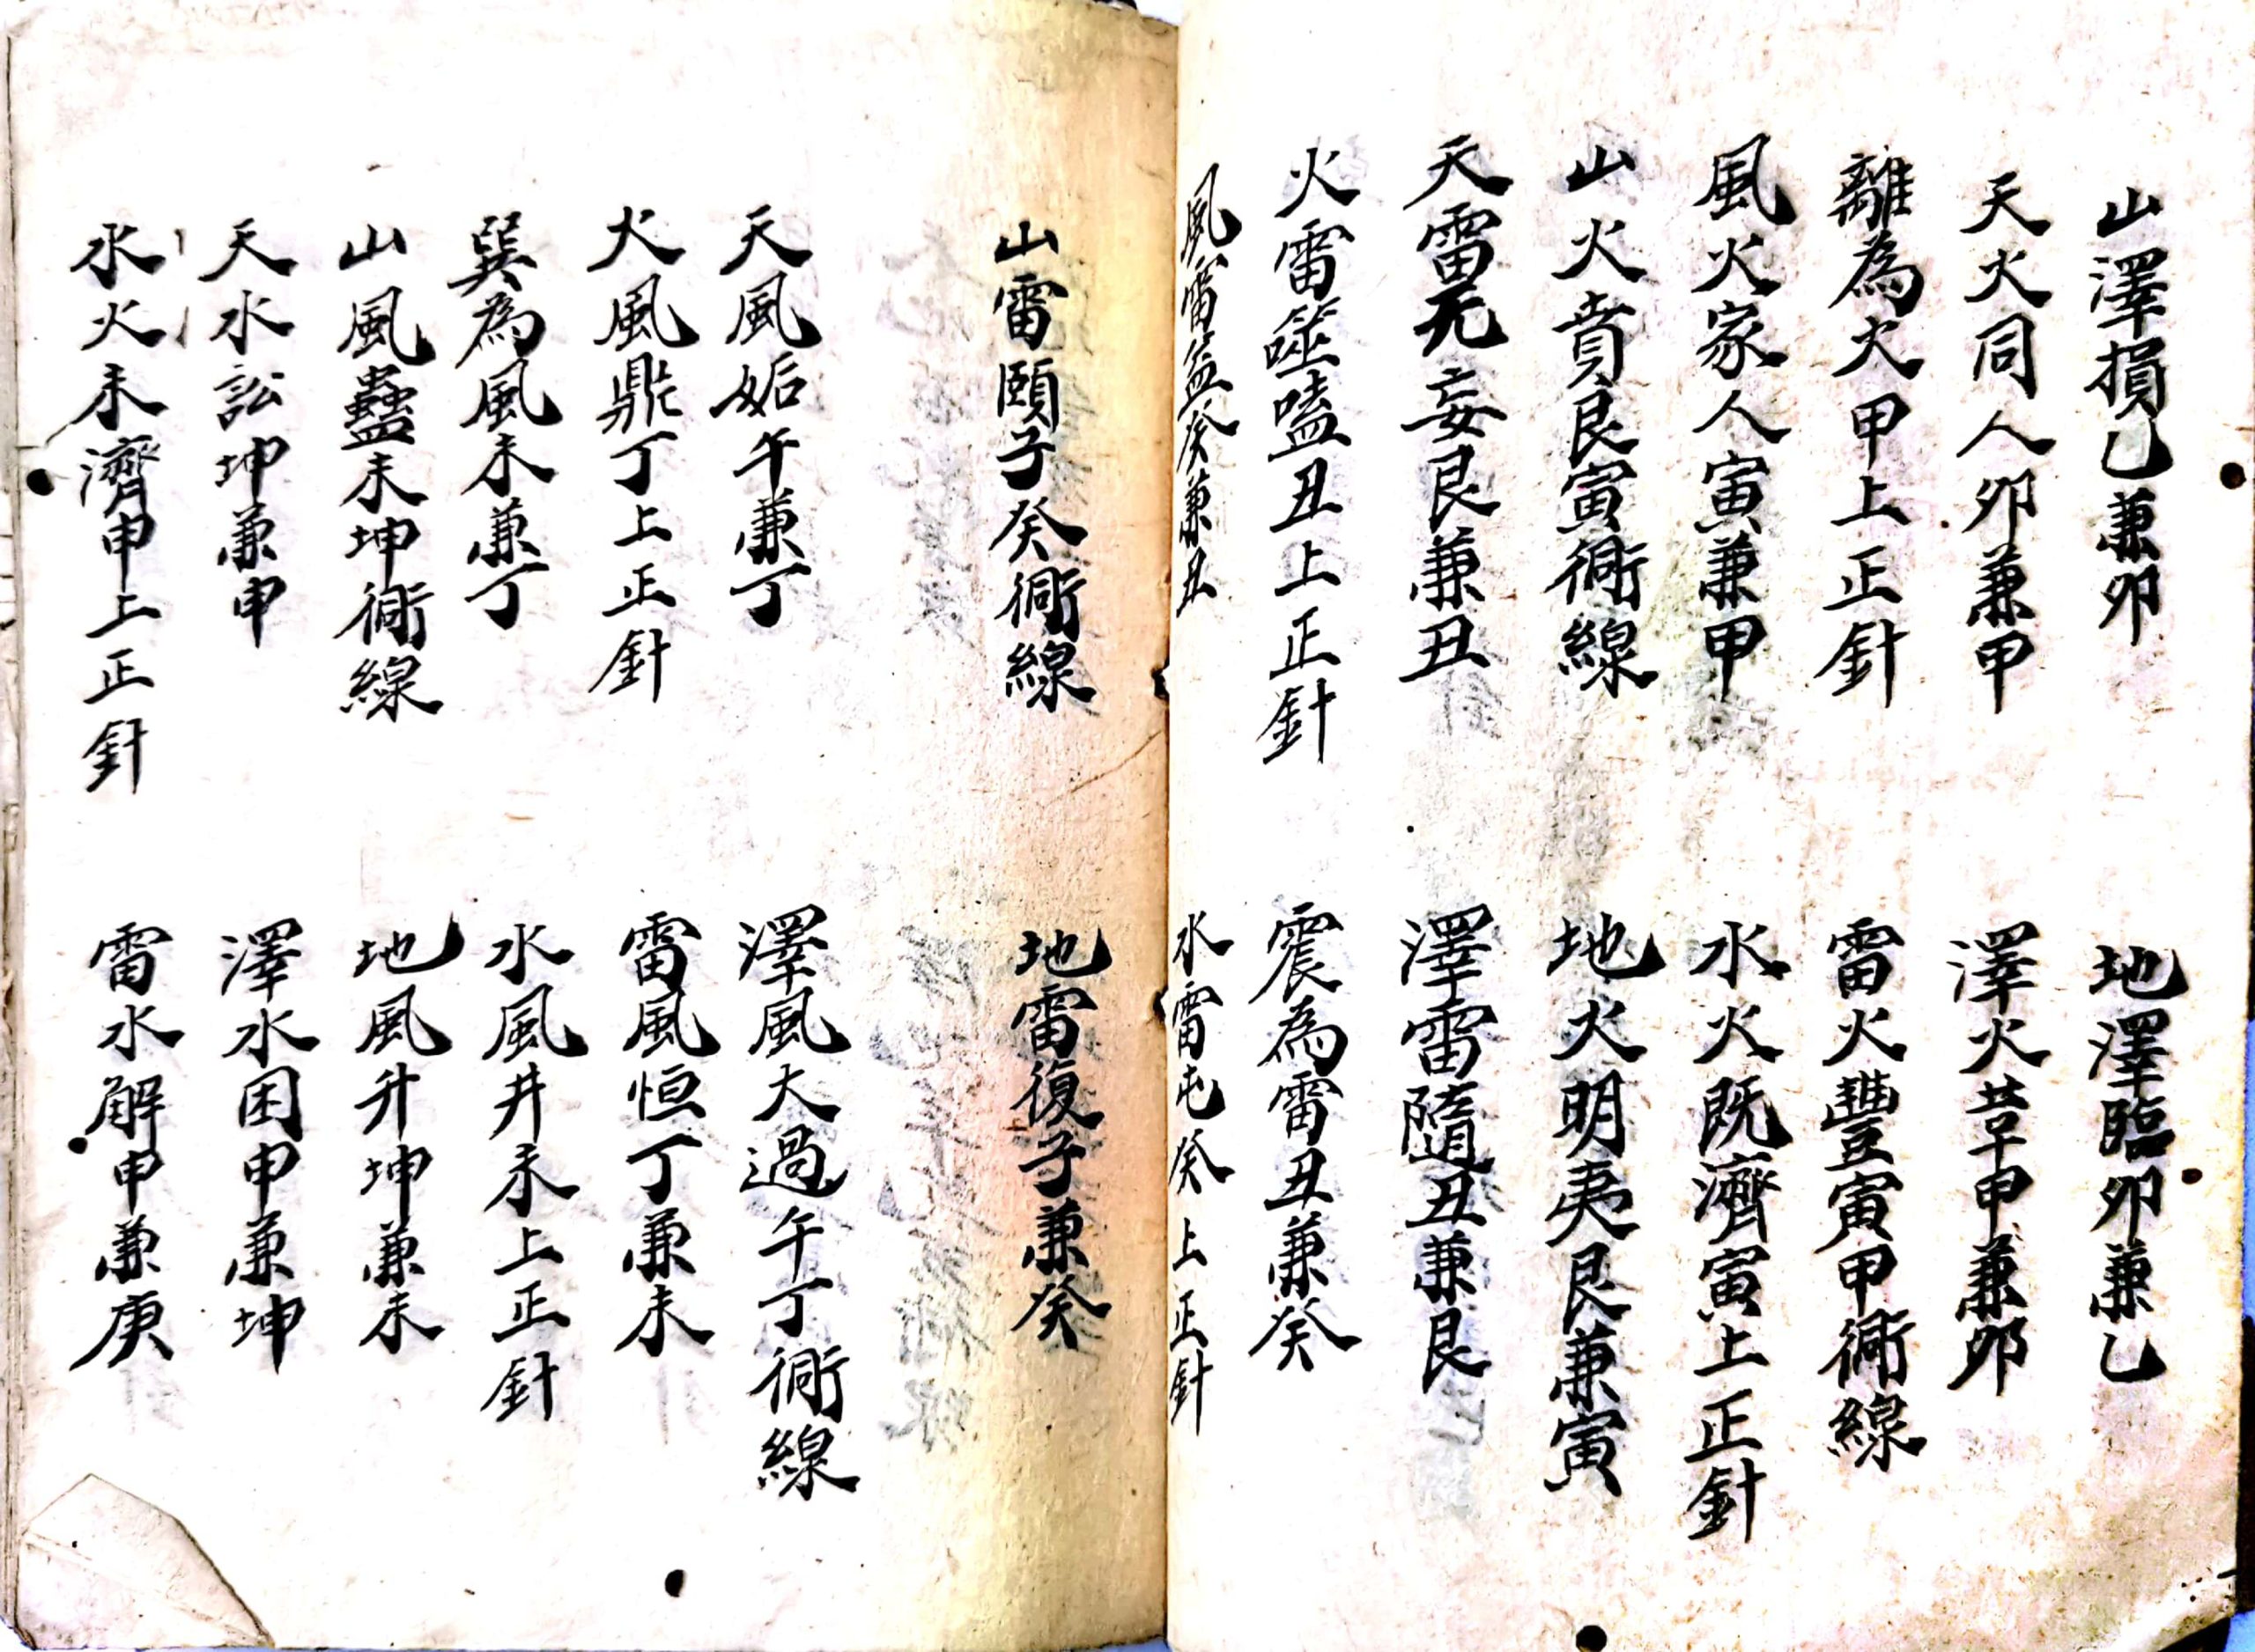 山澤損乙兼卯
地澤臨卯兼乙
天火同人卯兼甲
澤火革甲兼卯
離為火甲上正針
雷火豐寅甲衕線
風火家人寅兼甲
水火既濟寅上正針
山火賁艮寅衕線
地火明夷艮兼寅
天雷无妄艮兼丑
澤雷隨丑兼艮
火雷噬嗑丑上正針
震為雷丑兼癸
風雷益癸兼丑
水雷屯癸上正針
山雷頤子癸衕線
地雷復子兼癸
天風姤午兼丁
澤風大過午丁衕線
火風鼎丁上正針
雷風恒丁兼未
巽為風未兼丁
水風井未上正針
山風蠱未坤衕線
地風升坤兼未
天水訟坤兼申
澤水困申兼坤
水火未濟申上正針
雷水解申兼庚